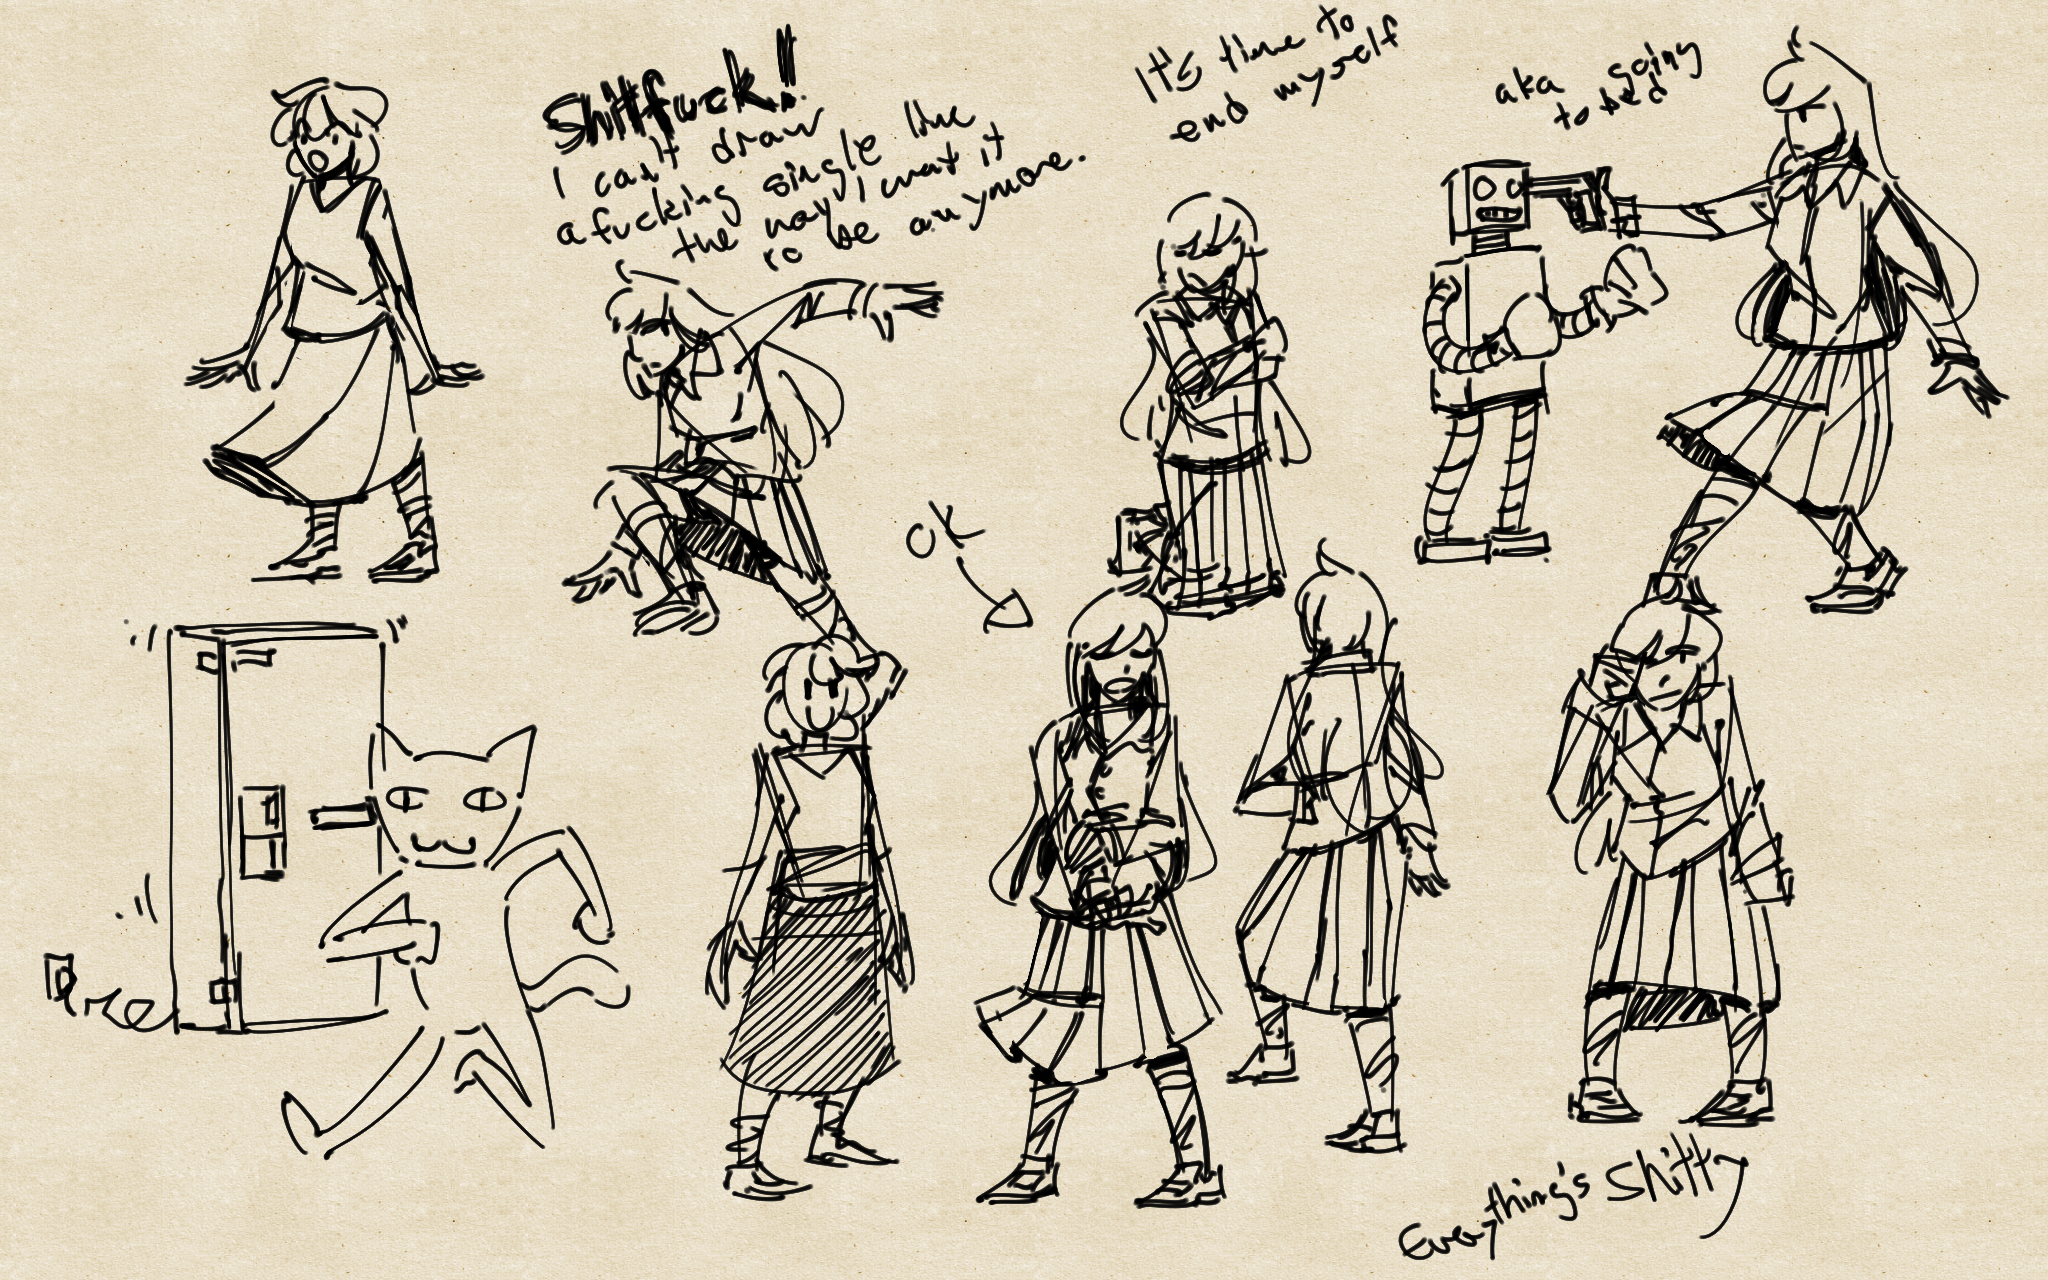 Shitfuck!!
I can't draw
a fucking single line
the way I want it
ro be anymore.
It's time to
end myself
aka going
to bed
OK
Everything's Shitty